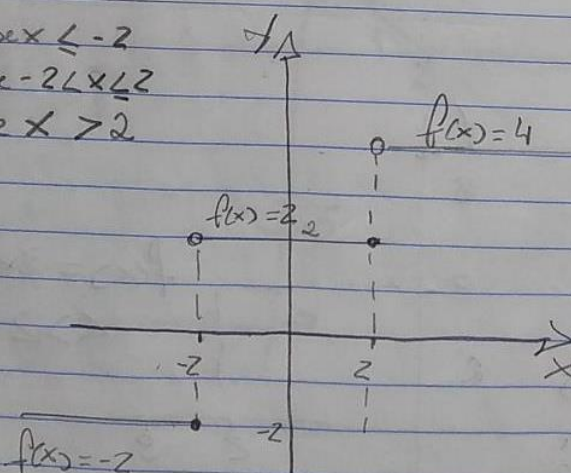 x ≤ -2
-2 < x ≤ 2
x > 2
y
f(x) = 4
f(x) = 2
2
-2
2
x
-2
f(x) = -2